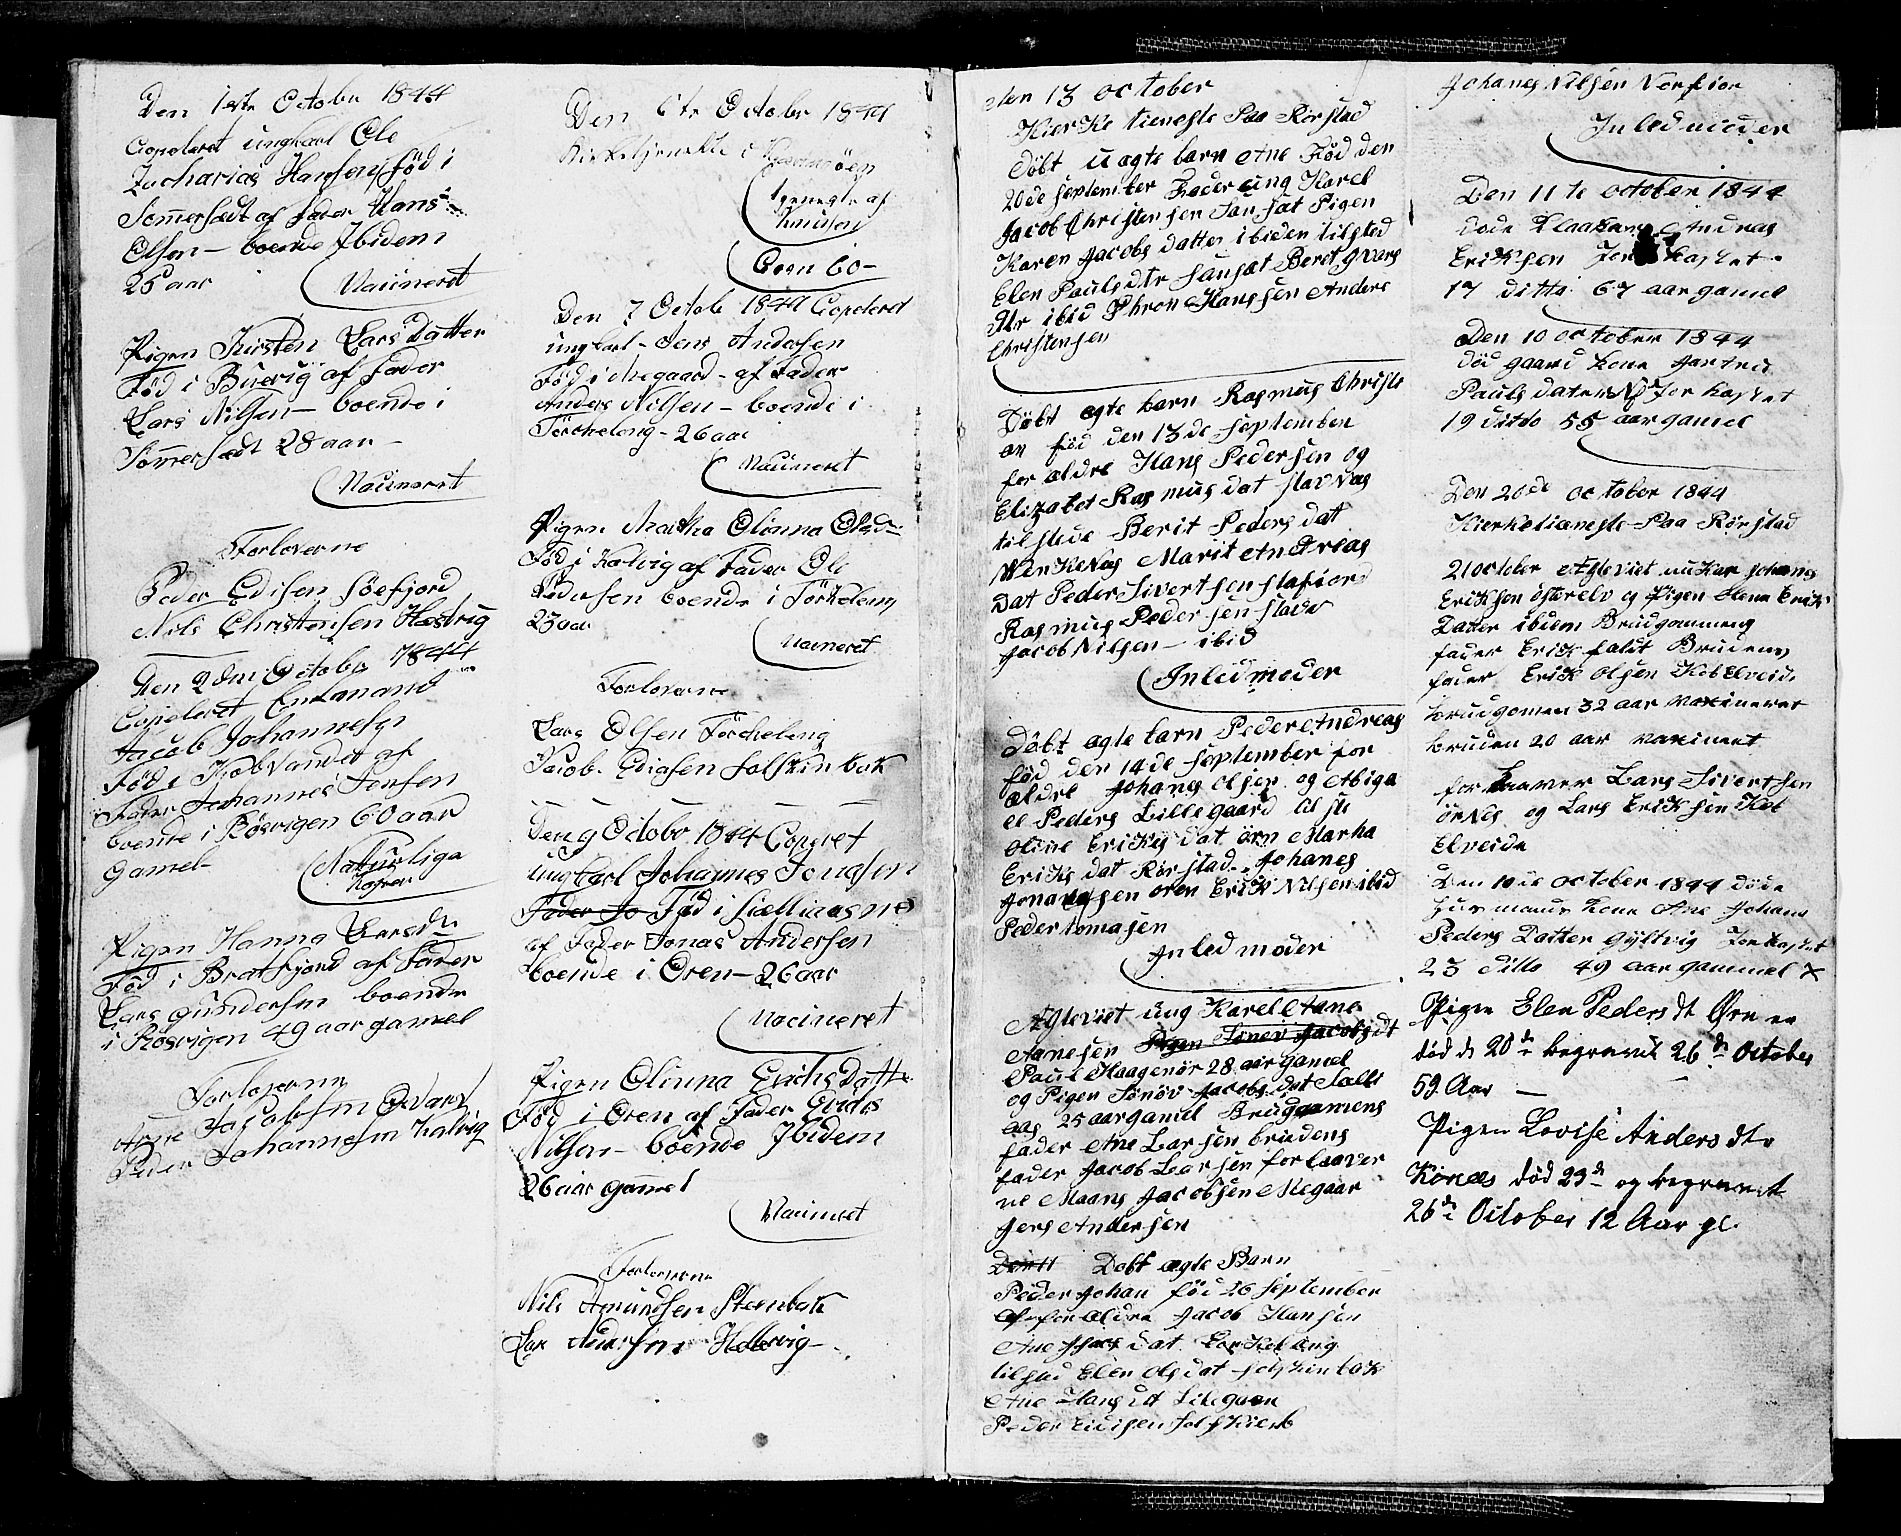 Den 1ste Octobr 1844
Copuleret ungkarl Ole
Zacharias Hansen född i
Sommersædt af Fader Hans
Olsen - boende Ibidem
25 aar
Vacineret
Pigen Kirsten Lars Datter
Född i Buevig af Fader
Lars Nilsen - boende i
Sommersædt 28 aar -
Vacineret
Forloverne
Peder Edisen Söefjord
Nils Christensen Hæstvig
Den 2den Octobr 1844
Copuleret Enkemand
Jacob Johannesen
Föd i Kobvandet af
Fader Johannes Jensen
boende i Rösvigen 60 aar
Gamel -
Naturliga
Koper
Pigen Hanna Larsdtr
Föd i Bratfjord af Fader
Lars Gundersen boende
i Rösvigen 49 aar gamel
Forloverne
Arne Jacobsen Qvarv
Peder Johannesen Kalvig
Den 6te Octobr 1844
Kirketjeneste i
tjeneste af
Knudsen
Den 7 Octob 1844 Copuleret
ungkarl - Jens Andersen
Föd i Megaard - af Fader
Anders Nilsen - boende i
Törcheleng - 26 aar
Vacineret
Pigen Martha Olianna Olsd
Föd i Kalvig af Fader Ole
Pedersen boende i Törkeleng
23 aar
Vacineret
Forloverne
Lars Olsen Törcheleng
Jacob Ediasen Solskinbak
Den 9 Octobr 1844 Copuret
ungkarl Johannes Jonassen
Fader Jo Föd i
af Fader Jonas Andersen
boende i Oren - 26 aar
Vacineret
Pigen Olinna Erichs Datte
Föd i Oren af Fader Erichs
Nilsen - boende Ibidem
26 aar gamel
Vacineret
Forloverne
Nils Amundsen Stenbak
Lars Andersen Hellervig -
den 13 october
Kierke tieneste Paa Rörstad
Döbt uagte barn Ane Född den
20de september Fader ung Karel
Jacob Christensen Sansæt Pigen
Karen Jacobs datter ibiden tilsted
Elen Pauls dtr sansæt Beret Gvars
dtr ibid Thron Hanssen Anders
Christensen
Döbt agte barn Rasmus Christi
an föd den 13de september
for aldre Hans Pedersen og
Elizabet Rasmus dat slavnas
tilstede Berit Peders dat
Wenkenas Marit Andreas
Dat Peder Sivertsen slafiord
Rasmus Pedersen slavv
Jacob Nilsen - ibid
Inledmoder
Döbt agte barn Peder Andreas
föd den 14de september for
aldre Johans Olsen og Abiga
el Peders Lillegaard til ste
Oline Ericks dat örn Marha
Ericks dat Rörstad - Johanes
Jonassen oren Erick Nilsen ibid
Peder tomasen
Inled moder
Agleviet ung Karel Arne
Arnesen Pigen Sönev Jacobsdt
Paul Haagenör 28 aar gamel
og Pigen Sönöv Jacobs dat Salb
aas 25 aar gamel Brudgamens
fader Ane Larsen brudens
fader Jacob Larsen for laaver
ne Maans Jacobsen Megaar
Jens Andersen
Dentt Döbt ægte Barn
Peder Johan föd 26 september
af foraldre Jacob Hansen
Ane dat torkelæng
tilstad Elen Ols dat solskin bak
Ane Hans dt Lilegaan
Peder Eidisen
Johanes Nilsen Norfior
Inledmoder
Den 11te october 1844
döde Klaakar Andreas
Ericksen Jordkastet
17 ditto 67 aar gamel
Den 10 october 1844
död gaard kone Jartru
Pauls dater Jor kastet
19 ditto 55 aar gamel
Den 20de october 1844
Kierketianeste Paa Rörstad
21 october Agleviet unkar Johans
Ericksen österelv og Pigen Elena Erick
Datter ibiem Brudgommens
fader Erick faldt Brudens
fader Erick Olsen Kobelveid
brudgomen 32 aar vaxineret
bruden 20 aar vaxinert
for laaver Lars Sivertsen
örnes og Lars Ericksen Kob
Elveide
Den 10de october 1844 döde
Husmands kone Ane Johans
Peders Datter Gyltvig Jorkastet
23 ditto 49 aar gammel
Pigen Elen Peders dt Ören er
död d 20de begravet 26de October
59 Aar -
Pigen Lovise Anders dtr
Könæs död 23de og begravet
26de October 12 Aar gl.